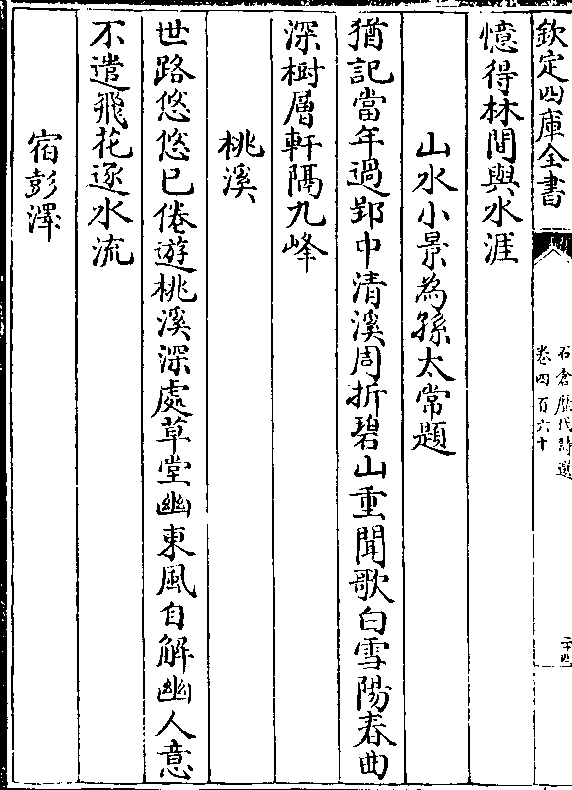 欽定四庫全書
石倉歷代詩選
卷四百六十
二十四
憶得林間與水涯
山水小景為孫太常題
猶記當年過郢中清溪周折碧山重聞歌白雪陽春曲
深樹層軒隔九峰
桃溪
世路悠悠已倦遊桃溪深處草堂幽東風自解幽人意
不遣飛花逐水流
宿彭澤